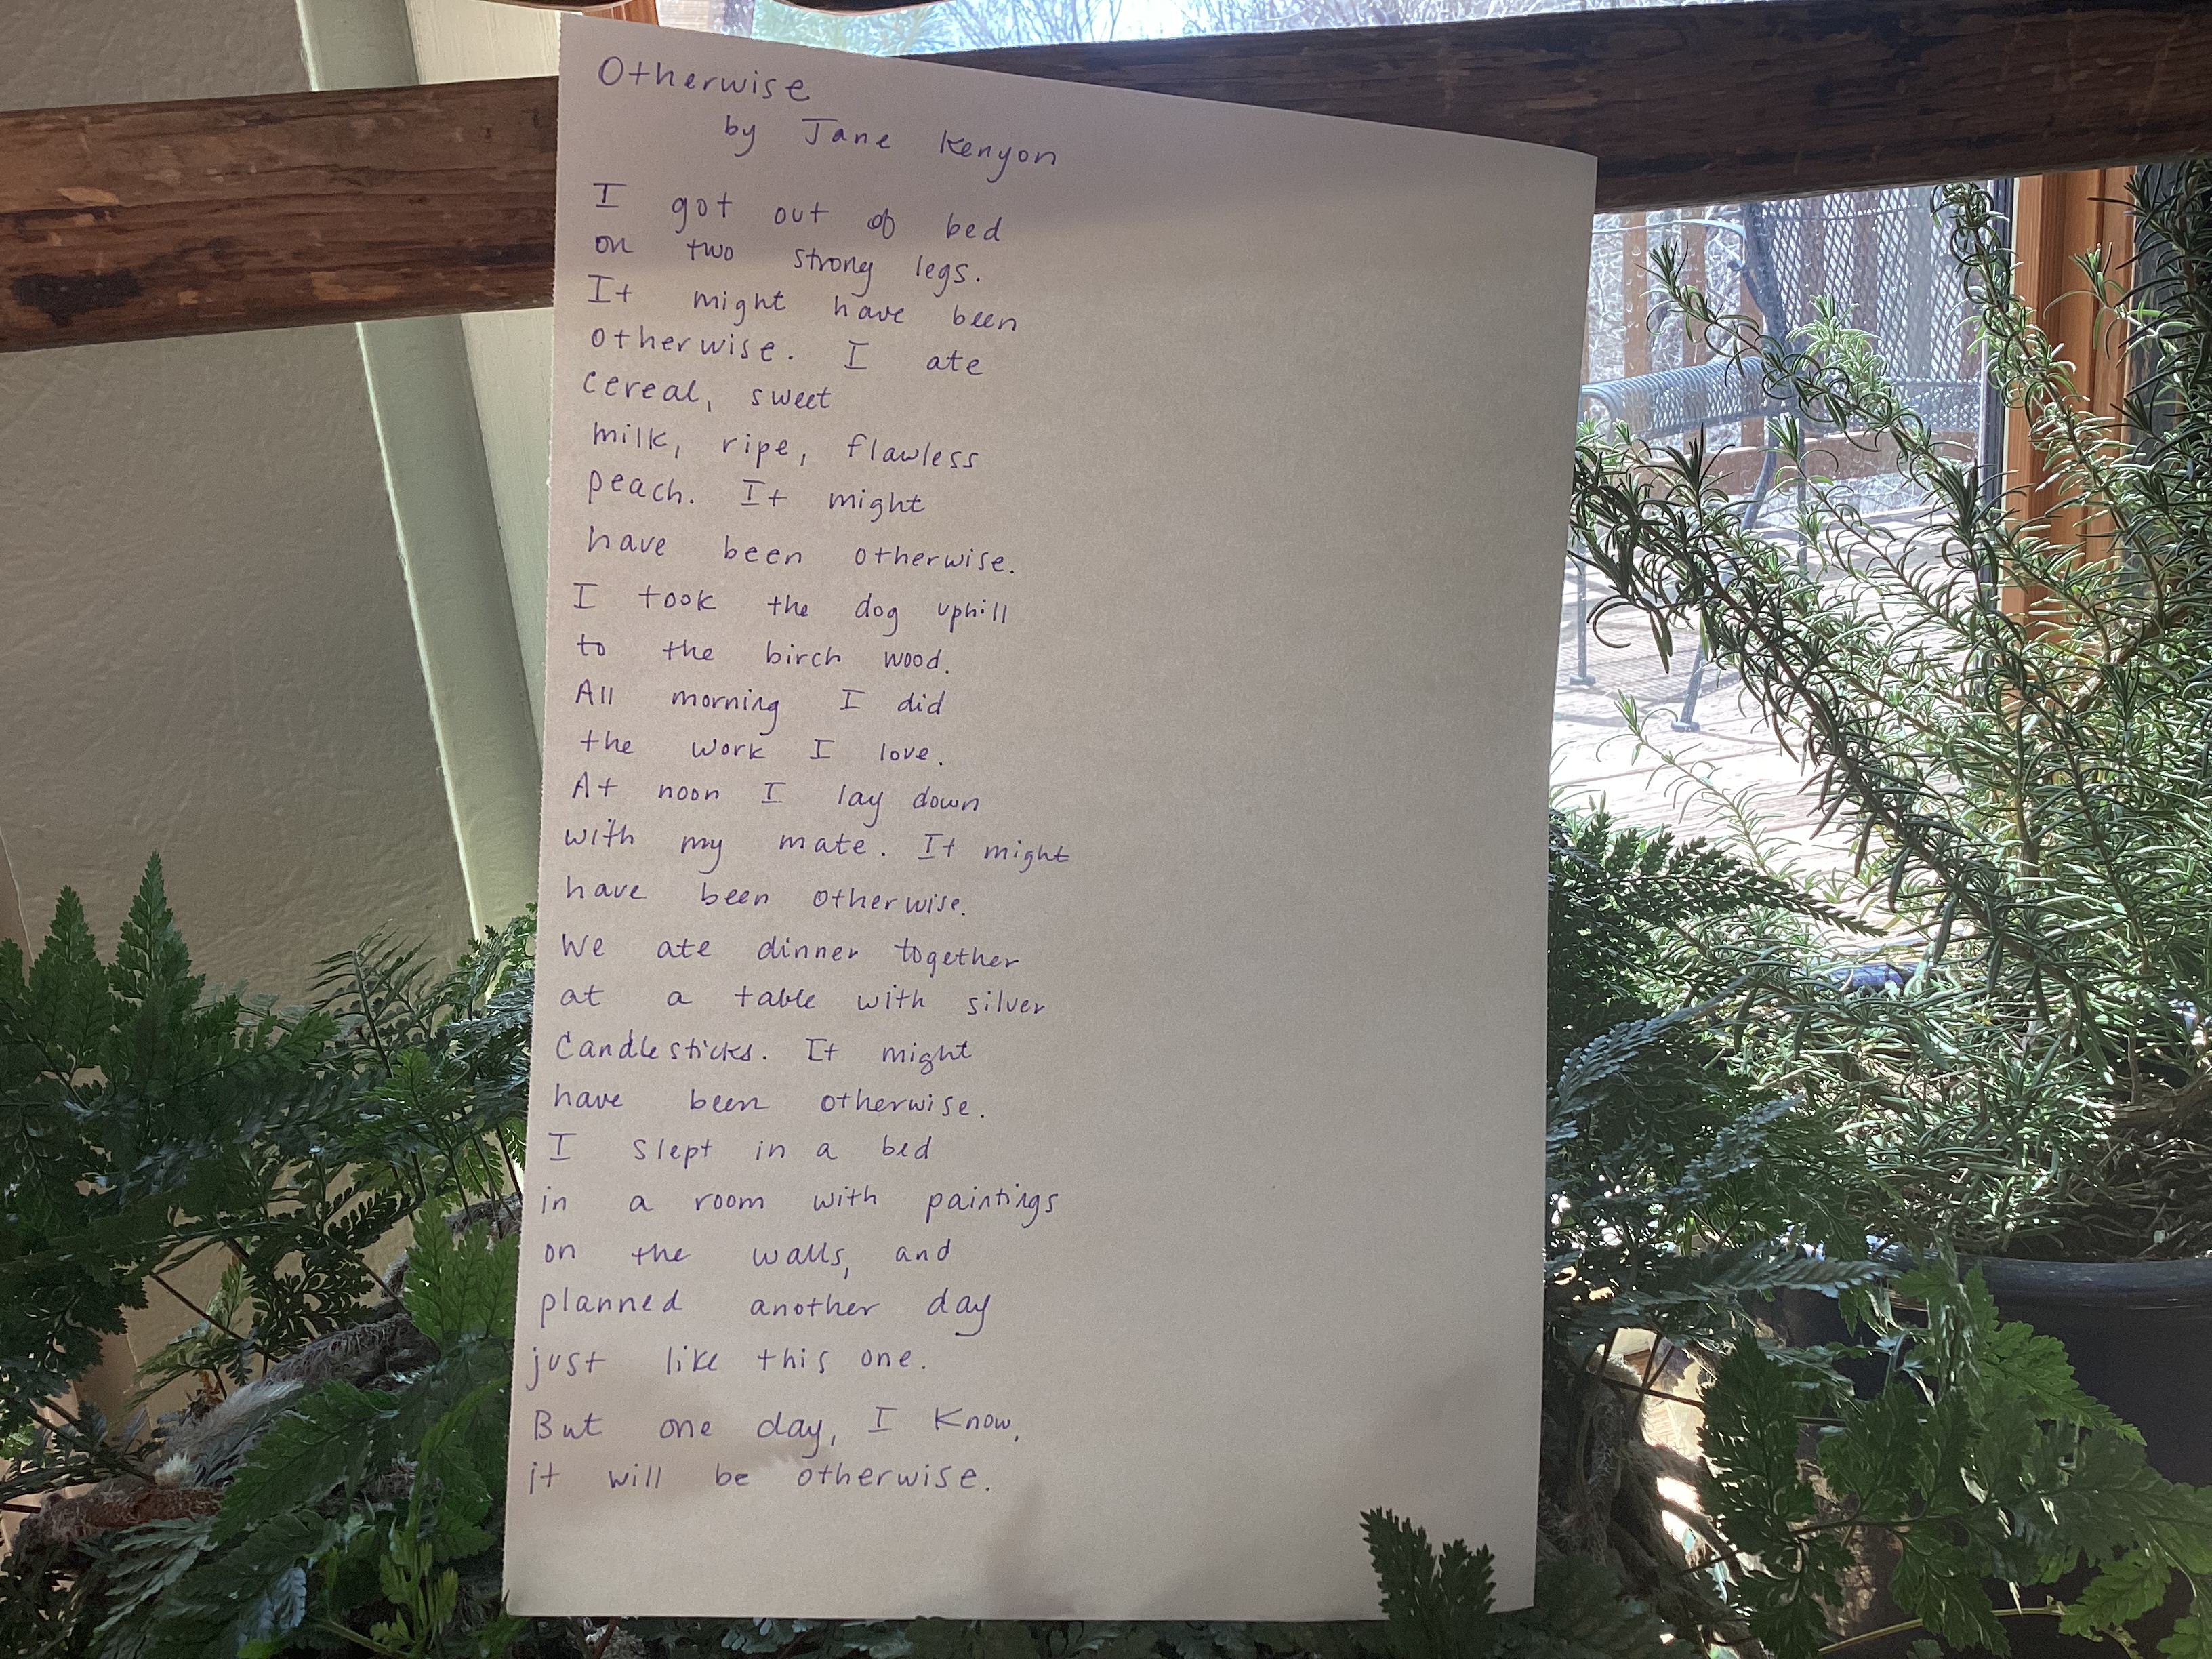 Otherwise
by Jane Kenyon
I got out of bed
on two strong legs.
It might have been
otherwise. I ate
cereal, sweet
milk, ripe, flawless
peach. It might
have been otherwise.
I took the dog uphill
to the birch wood.
All morning I did
the work I love.
At noon I lay down
with my mate. It might
have been otherwise.
We ate dinner together
at a table with silver
Candlesticks. It might
have been otherwise.
I slept in a bed
in a room with paintings
on the walls, and
planned another day
just like this one.
But one day, I know,
it will be otherwise.